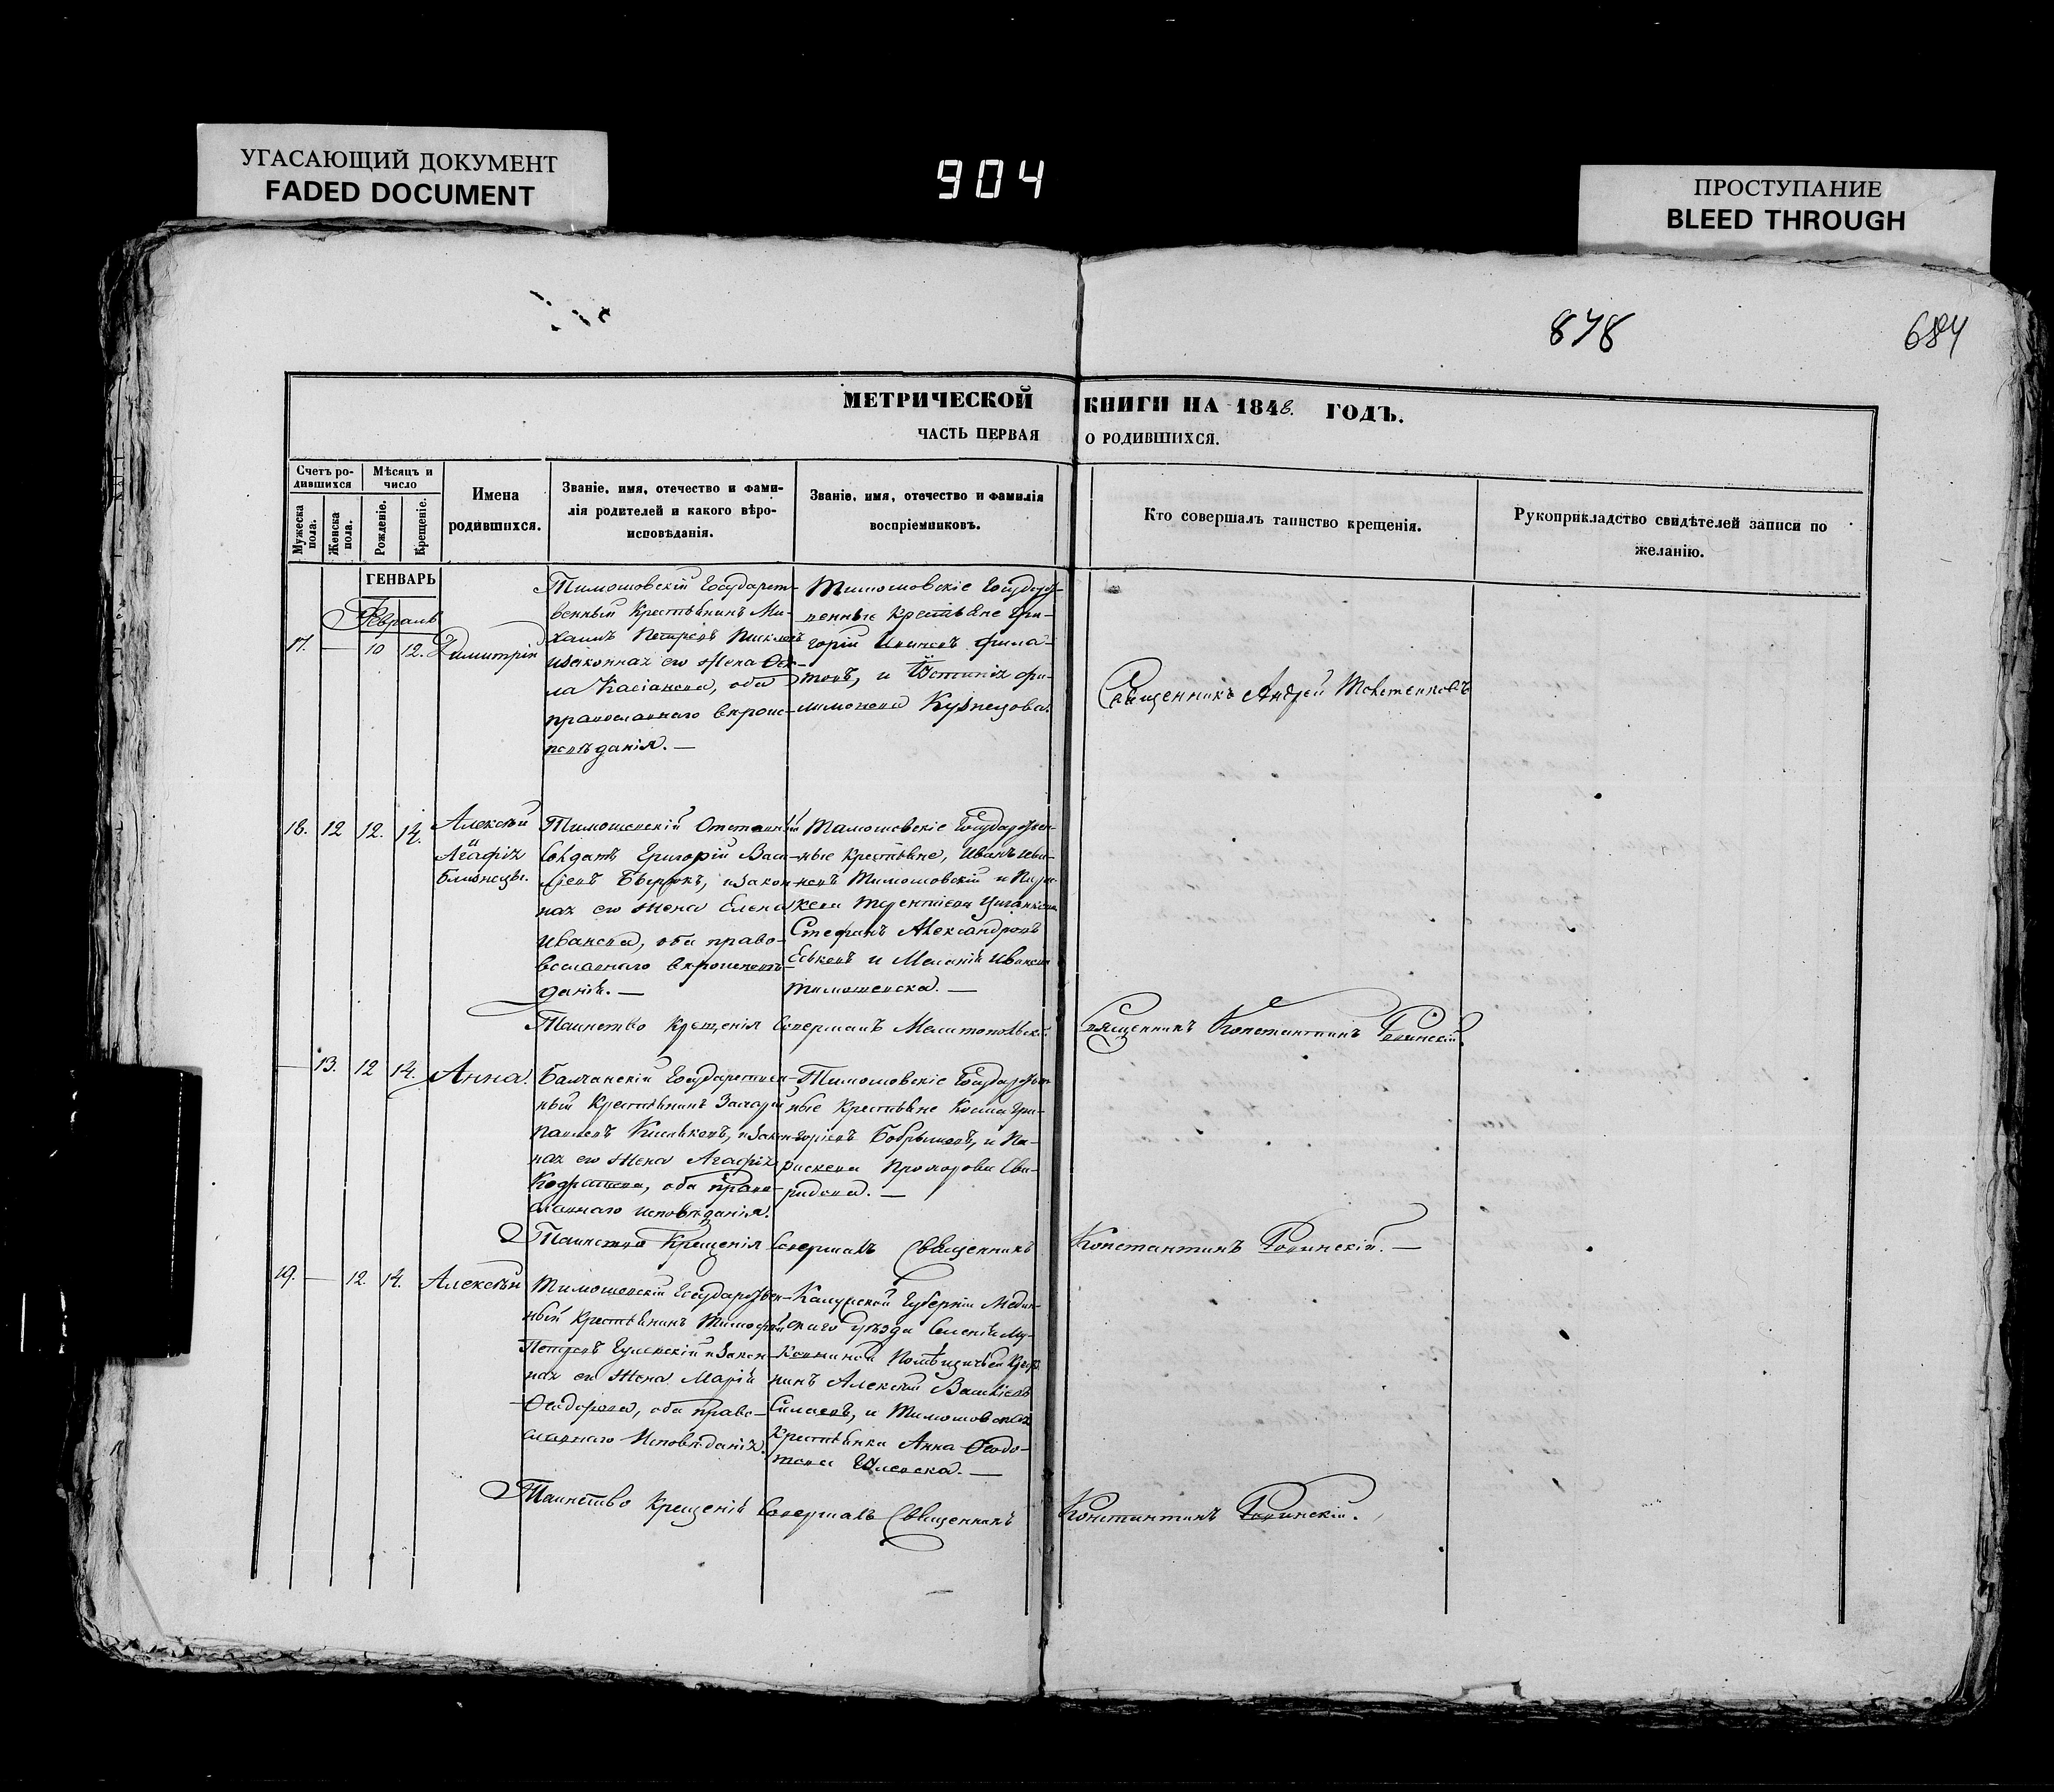 УГАСАЮЩИЙ ДОКУМЕНТ
FADED DOCUMENT
904
ПРОСТУПАНИЕ
BLEED THROUGH
878
684
МЕТРИЧЕСКОЙ КНИГИ НА 1848. ГОДЪ.
ЧАСТЬ ПЕРВАЯ О РОДИВШИХСЯ.
Счетъ ро-
дившихся
Мужеска пола.
Женска пола.
Мѣсяцъ и
число
Рожденіе.
Крещеніе.
Имена
родившихся.
Званіе, имя, отечество и фами-
лія родителей и какого вѣро-
исповѣданія.
Званіе, имя, отечество и фамилія
воспріемниковъ.
Кто совершалъ таинство крещенія.
Рукоприкладство свидѣтелей записи по
желанію.
ГЕНВАРЬ
Февраль
17. — 10 12. Димитрій
Тимошовскій Государст-
венный Крестьянинъ Ми-
хаилъ Петровъ
и законная его Жена Ѳек-
ла Касіанова, оба
православнаго вѣроис-
повѣданія. —
Тимошовскіе Государст-
венные Крестьяне Гри-
горій Ивановъ Фила-
товъ, и Устинія Фи-
лимонова Кузнецова.
Священникъ Андрей
18. 12 12. 14.
Алексѣй
Агафія
близнецы.
Тимошевскій Отставный
Солдатъ Григорій Васи-
льевъ и закон-
ная его Жена Елена
Иванова, оба право-
вославнаго вѣроисповѣ-
данія. —
Тимошовскіе Государствен-
ные Крестьяне, Иванъ Ива-
новъ Тимошовскій и Парас-
кева Терентіева
Стефанъ Александровъ
Еськовъ и Меланія Иванова
Тимошевска. —
Таинство Крещенія Совершалъ Мелитопольскій
Священникъ Константинъ
— 13. 12 14. Анна.
Балчанскій Государствен-
ный Крестьянинъ Захарій
Павловъ и закон-
ная его Жена Агафія
Кодратова, оба право-
славнаго исповѣданія.
Тимошовскіе Государствен-
ные Крестьяне Косма Гри-
горіевъ Бобрышевъ, и Па-
раскева Прохорова Сви-
ридова. —
Таинство Крещенія Совершалъ Священникъ
Константинъ
19. — 12. 14. Алексѣй
Тимошевскій Государствен-
ный Крестьянинъ Тимофей
Петровъ и закон-
ная его Жена Марія
Ѳеодорова, оба право-
славнаго Исповѣданія.
Калужской Губерніи Медын-
скаго уѣзда Селенія
Помѣщичьей
Алексѣй Васильевъ
Силаевъ, и Тимошовская
Крестьянка Анна Ѳеодо-
това
Таинство Крещенія Совершалъ Священникъ
Константинъ